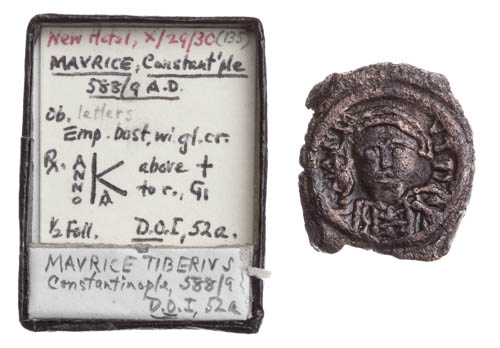 New Hotel, X/29/30 (135)
MAVRICE, Constant'ple
583/9 A.D.
ob. letters
Emp. bust, wi gl. cr.
Rx. ANNO K above +
A to r., G1
½ Foll. D.O. I, 52a.
MAVRICE TIBERIVS
Constantinople, 588/9
D.O. I, 52a